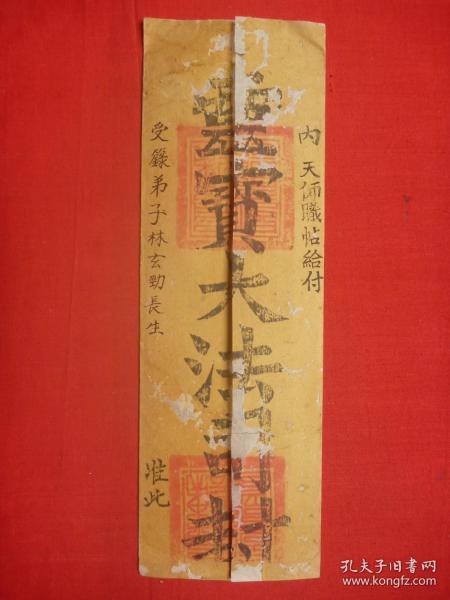 內 天師職帖給付
靈寶大法司封
受籙弟子林玄勁長生
准此
孔夫子旧书网
www.kongfz.com